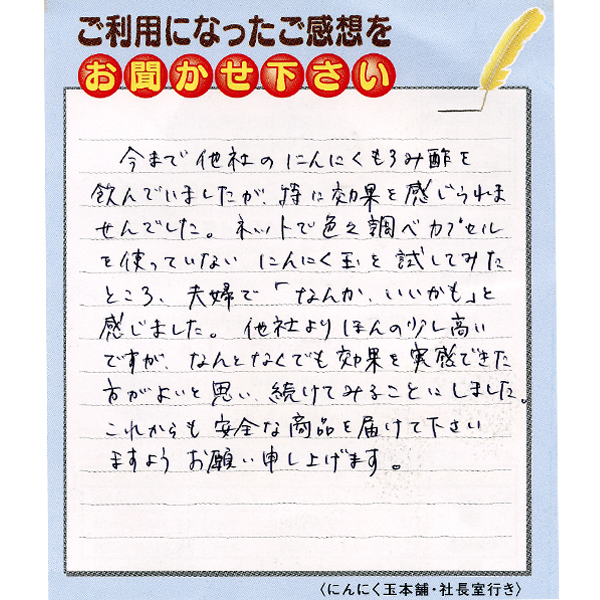 ご利用になったご感想を
お聞かせ下さい
今まで他社のにんにくもろみ酢を
飲んでいましたが、特に効果を感じられま
せんでした。ネットで色々調べカプセル
を使っていないにんにく玉を試してみた
ところ、夫婦で「なんか、いいかも」と
感じました。他社よりほんの少し高い
ですが、なんとなくでも効果を実感できた
方がよいと思い、続けてみることにしました。
これからも安全な商品を届けて下さい
ますようお願い申し上げます。
〈にんにく玉本舗・社長室行き〉